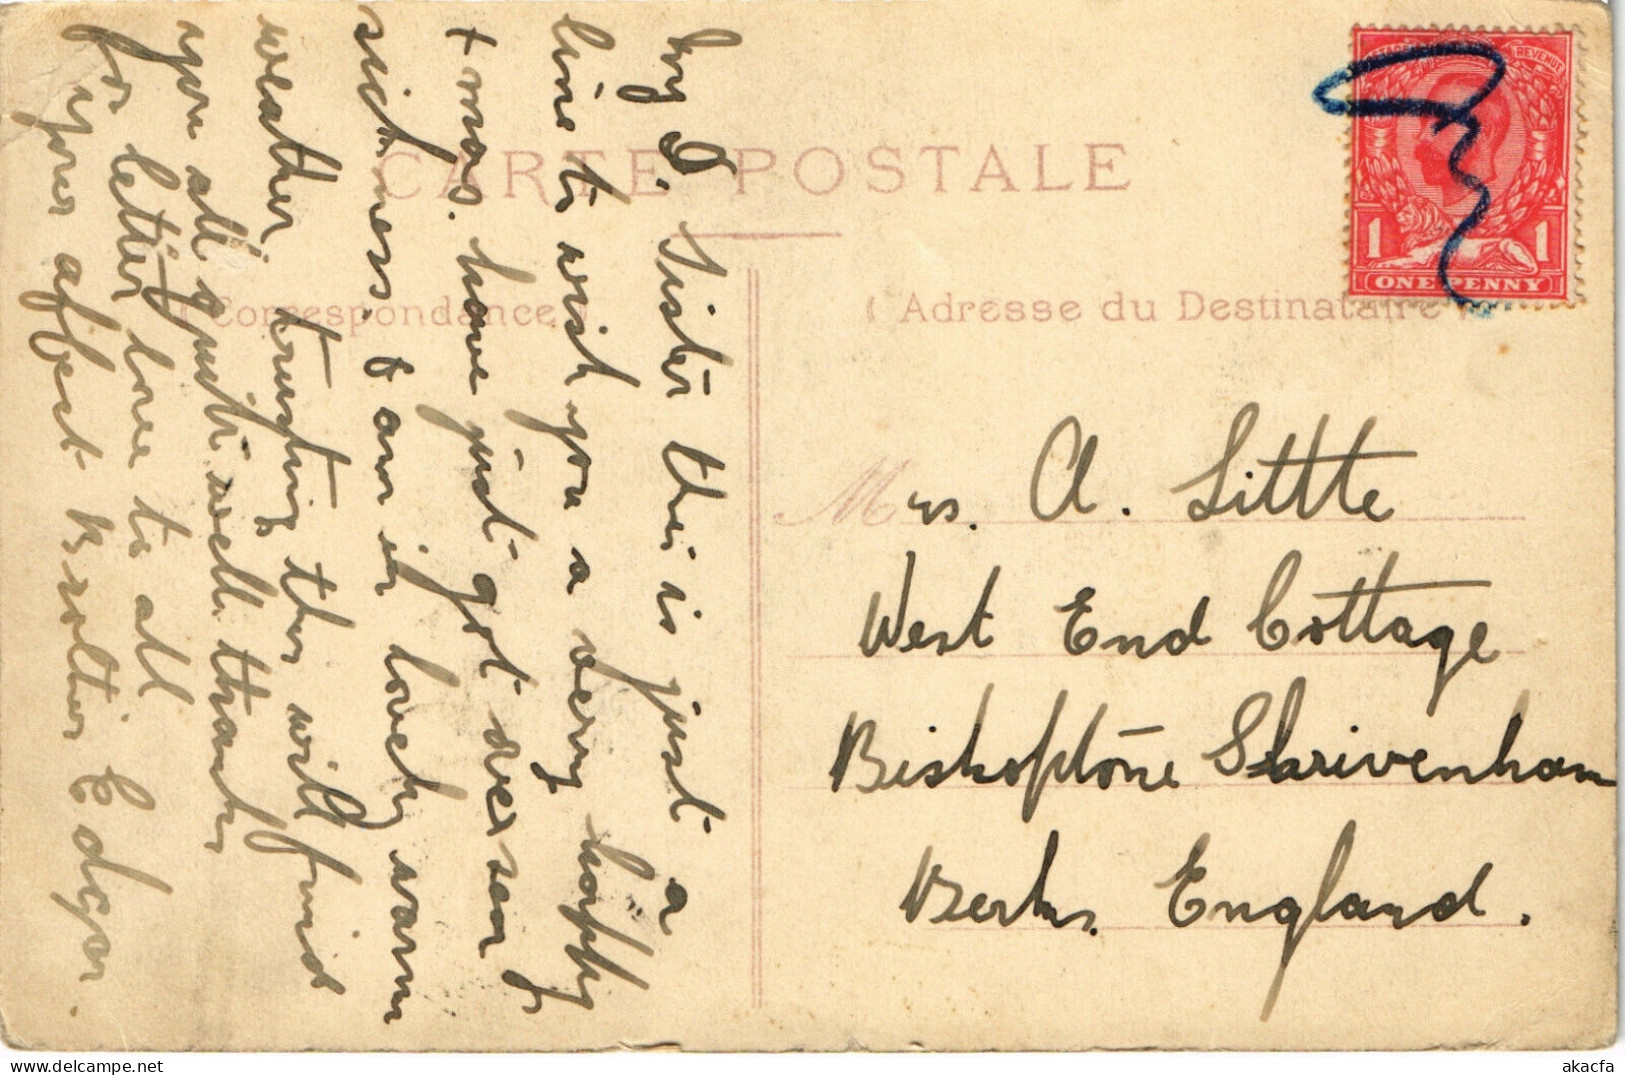 CARTE POSTALE
( Correspondance )
( Adresse du Destinataire )
POSTAGE REVENUE
1 1
ONE PENNY
My D. Sister this is just a
line to wish you a very happy
Xmas. have just got over sea
sickness, & am in lovely warm
weather, trusting this will find
you all quite well. thanks
for letter love to all
your affect Brother Edgar.
Mrs. A. Little
West End Cottage
Bishopstone Shrivenham
Berks. England.
akacfa